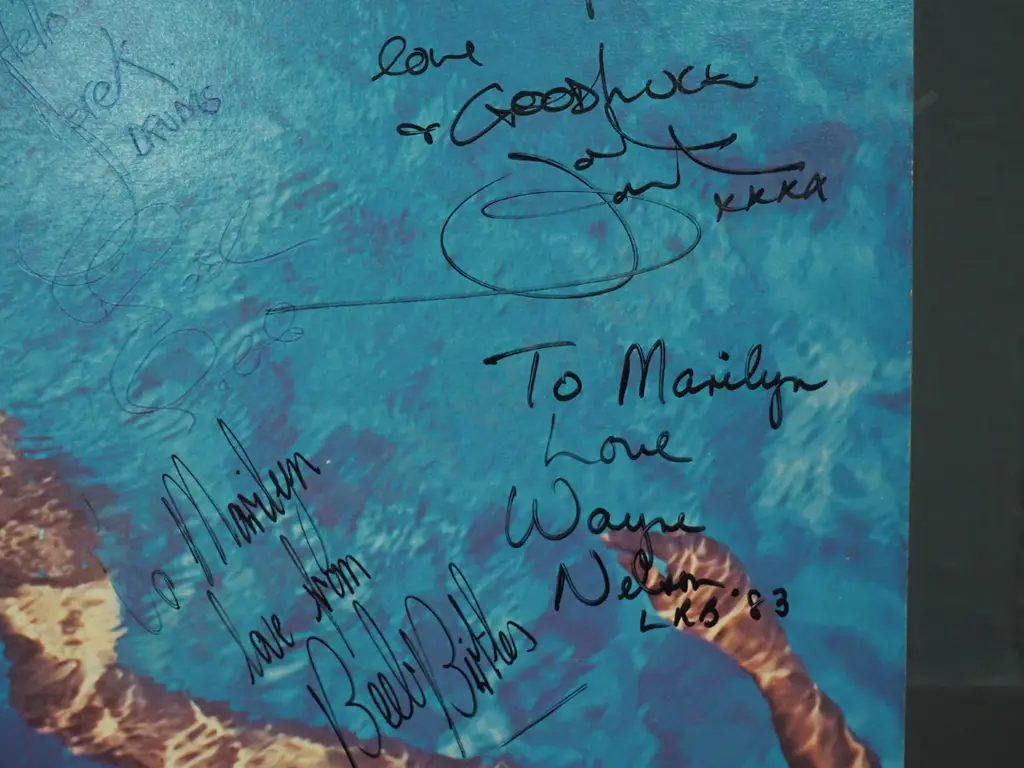 Hello
Derek
DRUMS
love
& GOODLUCK
xxxx
To Marilyn
Love
Wayne
Nelson
LRB '83
To Marilyn
love from
Beeb Birtles